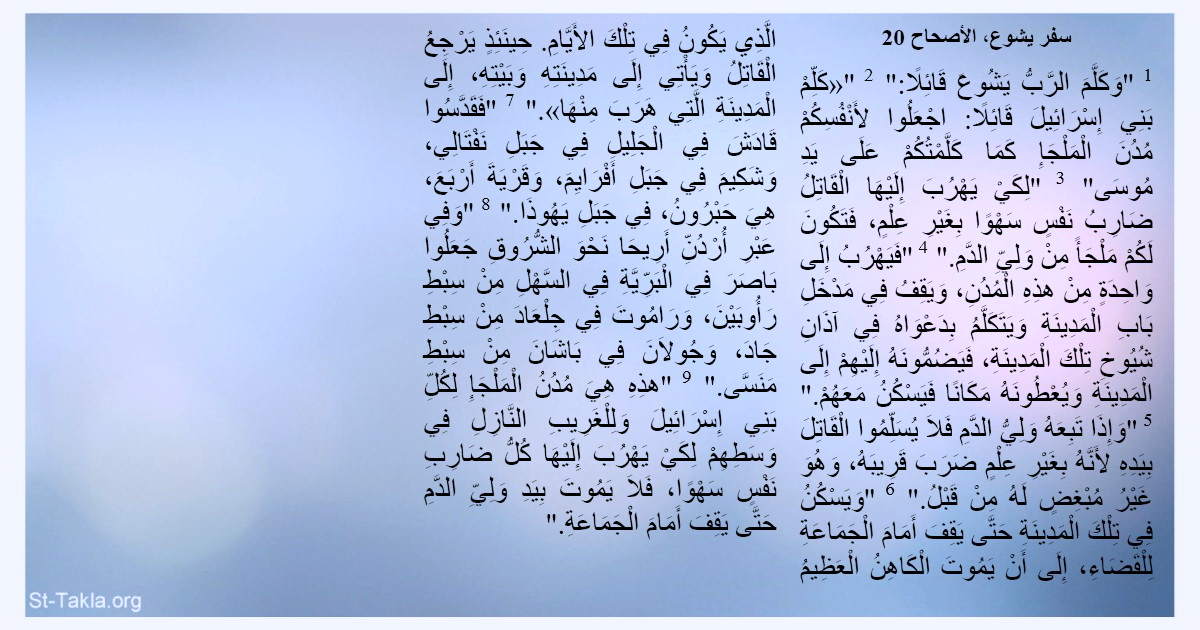 سفر يشوع، الأصحاح 20
1 "وَكَلَّمَ الرَّبُّ يَشُوعَ قَائِلًا:" 2 "«كَلِّمْ
بَنِي إِسْرَائِيلَ قَائِلًا: اجْعَلُوا لأَنْفُسِكُمْ
مُدُنَ الْمَلْجَإِ كَمَا كَلَّمْتُكُمْ عَلَى يَدِ
مُوسَى" 3 "لِكَيْ يَهْرُبَ إِلَيْهَا الْقَاتِلُ
ضَارِبُ نَفْسٍ سَهْوًا بِغَيْرِ عِلْمٍ، فَتَكُونَ
لَكُمْ مَلْجَأً مِنْ وَلِيِّ الدَّمِ." 4 "فَيَهْرُبُ إِلَى
وَاحِدَةٍ مِنْ هذِهِ الْمُدُنِ، وَيَقِفُ فِي مَدْخَلِ
بَابِ الْمَدِينَةِ وَيَتَكَلَّمُ بِدَعْوَاهُ فِي آذَانِ
شُيُوخِ تِلْكَ الْمَدِينَةِ، فَيَضُمُّونَهُ إِلَيْهِمْ إِلَى
الْمَدِينَةِ وَيُعْطُونَهُ مَكَانًا فَيَسْكُنُ مَعَهُمْ."
5 "وَإِذَا تَبِعَهُ وَلِيُّ الدَّمِ فَلاَ يُسَلِّمُوا الْقَاتِلَ
بِيَدِهِ لأَنَّهُ بِغَيْرِ عِلْمٍ ضَرَبَ قَرِيبَهُ، وَهُوَ
غَيْرُ مُبْغِضٍ لَهُ مِنْ قَبْلُ." 6 "وَيَسْكُنُ
فِي تِلْكَ الْمَدِينَةِ حَتَّى يَقِفَ أَمَامَ الْجَمَاعَةِ
لِلْقَضَاءِ، إِلَى أَنْ يَمُوتَ الْكَاهِنُ الْعَظِيمُ
الَّذِي يَكُونُ فِي تِلْكَ الأَيَّامِ. حِينَئِذٍ يَرْجِعُ
الْقَاتِلُ وَيَأْتِي إِلَى مَدِينَتِهِ وَبَيْتِهِ، إِلَى
الْمَدِينَةِ الَّتِي هَرَبَ مِنْهَا»." 7 "فَقَدَّسُوا
قَادَشَ فِي الْجَلِيلِ فِي جَبَلِ نَفْتَالِي،
وَشَكِيمَ فِي جَبَلِ أَفْرَايِمَ، وَقَرْيَةَ أَرْبَعَ،
هِيَ حَبْرُونُ، فِي جَبَلِ يَهُوذَا." 8 "وَفِي
عَبْرِ أُرْدُنِّ أَرِيحَا نَحْوَ الشُّرُوقِ جَعَلُوا
بَاصَرَ فِي الْبَرِّيَّةِ فِي السَّهْلِ مِنْ سِبْطِ
رَأُوبَيْنَ، وَرَامُوتَ فِي جِلْعَادَ مِنْ سِبْطِ
جَادَ، وَجُولاَنَ فِي بَاشَانَ مِنْ سِبْطِ
مَنَسَّى." 9 "هذِهِ هِيَ مُدُنُ الْمَلْجَإِ لِكُلِّ
بَنِي إِسْرَائِيلَ وَلِلْغَرِيبِ النَّازِلِ فِي
وَسَطِهِمْ لِكَيْ يَهْرُبَ إِلَيْهَا كُلُّ ضَارِبِ
نَفْسٍ سَهْوًا، فَلاَ يَمُوتَ بِيَدِ وَلِيِّ الدَّمِ
حَتَّى يَقِفَ أَمَامَ الْجَمَاعَةِ."
St-Takla.org